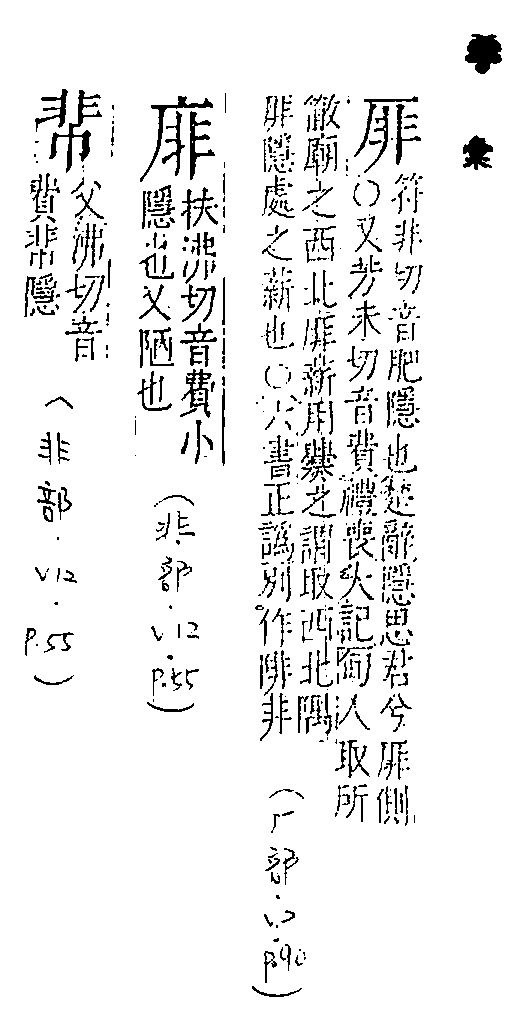 字彙
厞
符非切音肥隱也楚辭隱思君兮厞側
○又芳未切音費禮喪大記甸人取所
徹廟之西北厞薪用爨之謂取西北隅
厞隱處之薪也○六書正譌別作陫非
(厂部.V2.P.90)
扉
扶沸切音費小
隱也又陋也
(非部.V12.P.55)
𢂷
父沸切音
費𢂷隱
(非部.V12.P.55)